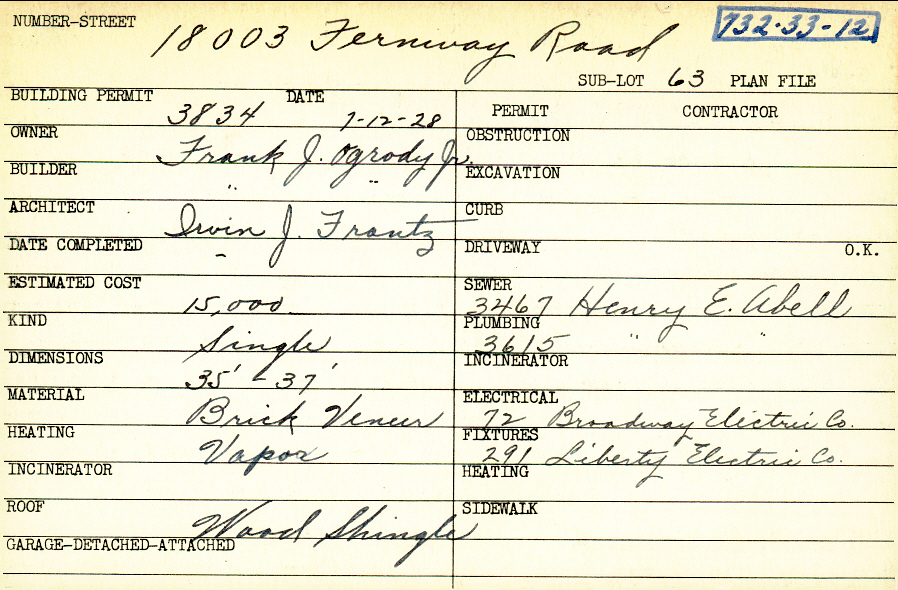 NUMBER-STREET
18003 Fernway Road
732-33-12
SUB-LOT 63 PLAN FILE
BUILDING PERMIT 3834 DATE 7-12-28
OWNER Frank J. Ogrody Jr.
BUILDER " "
ARCHITECT Irvin J. Frantz
DATE COMPLETED -
ESTIMATED COST 15,000
KIND Single
DIMENSIONS 35' - 37'
MATERIAL Brick Veneer
HEATING Vapor
INCINERATOR
ROOF Wood Shingle
GARAGE-DETACHED-ATTACHED
PERMIT CONTRACTOR
OBSTRUCTION
EXCAVATION
CURB
DRIVEWAY O.K.
SEWER
3467 Henry E. Abell
PLUMBING
3615 " "
INCINERATOR
ELECTRICAL
72 Broadway Electric Co.
FIXTURES
291 Liberty Electric Co.
HEATING
SIDEWALK